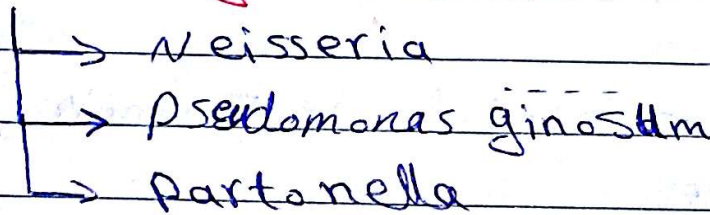 → Neisseria
→ Pseudomonas ginosum
→ Partonella